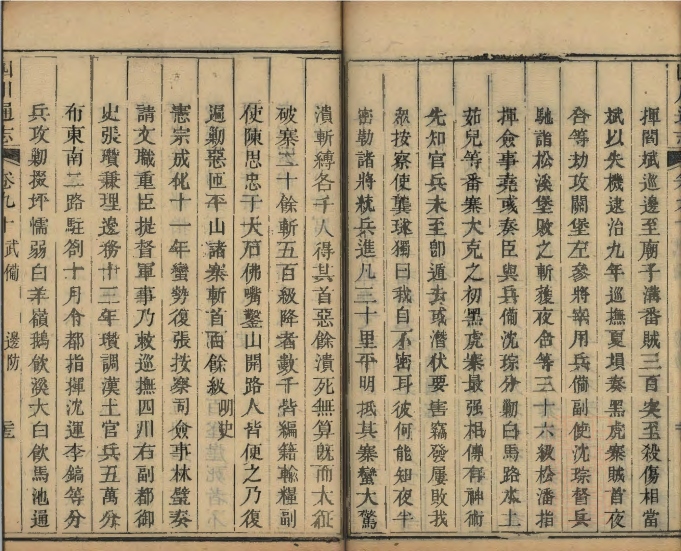 揮閻斌巡邊至廟子溝番賊三百突至殺傷相當
斌以失機逮治九年巡撫夏塤奏黑虎寨賊首夜
合等劫攻關堡左參將宰用兵備副使沈琮督兵
馳詣松溪堡敗之斬獲夜合等三十六級松潘指
揮僉事堯彧奏臣與兵備沈琮分勦白馬路水土
茹兒等番寨大克之初黑虎寨最强相傳有神術
先知官兵未至卽遁去或潛伏要害竊發屢敗我
衆按察使龔璲獨曰我自不密耳彼何能知夜半
密勒諸將統兵進凡三十里平明抵其寨蠻大驚
潰斬縛各千人得其首惡餘潰死無算旣而大征
破寨二十餘斬五百級降者數千皆編籍輸糧副
使陳思忠于大石佛嘴鑿山開路人皆便之乃復
遍勦惡匝平山諸寨斬首百餘級明史
憲宗成化十一年蠻勢復張按察司僉事林璧奏
請文職重臣提督軍事乃敕巡撫四川右副都御
史張瓚兼理邊務十三年瓚調漢土官兵五萬分
布東南二路駐劄十月令都指揮沈運李鎬等分
兵攻勦掇坪懦弱白羊嶺鵝飲溪大白飲馬池通
四川通志
卷九十 武備 邊防